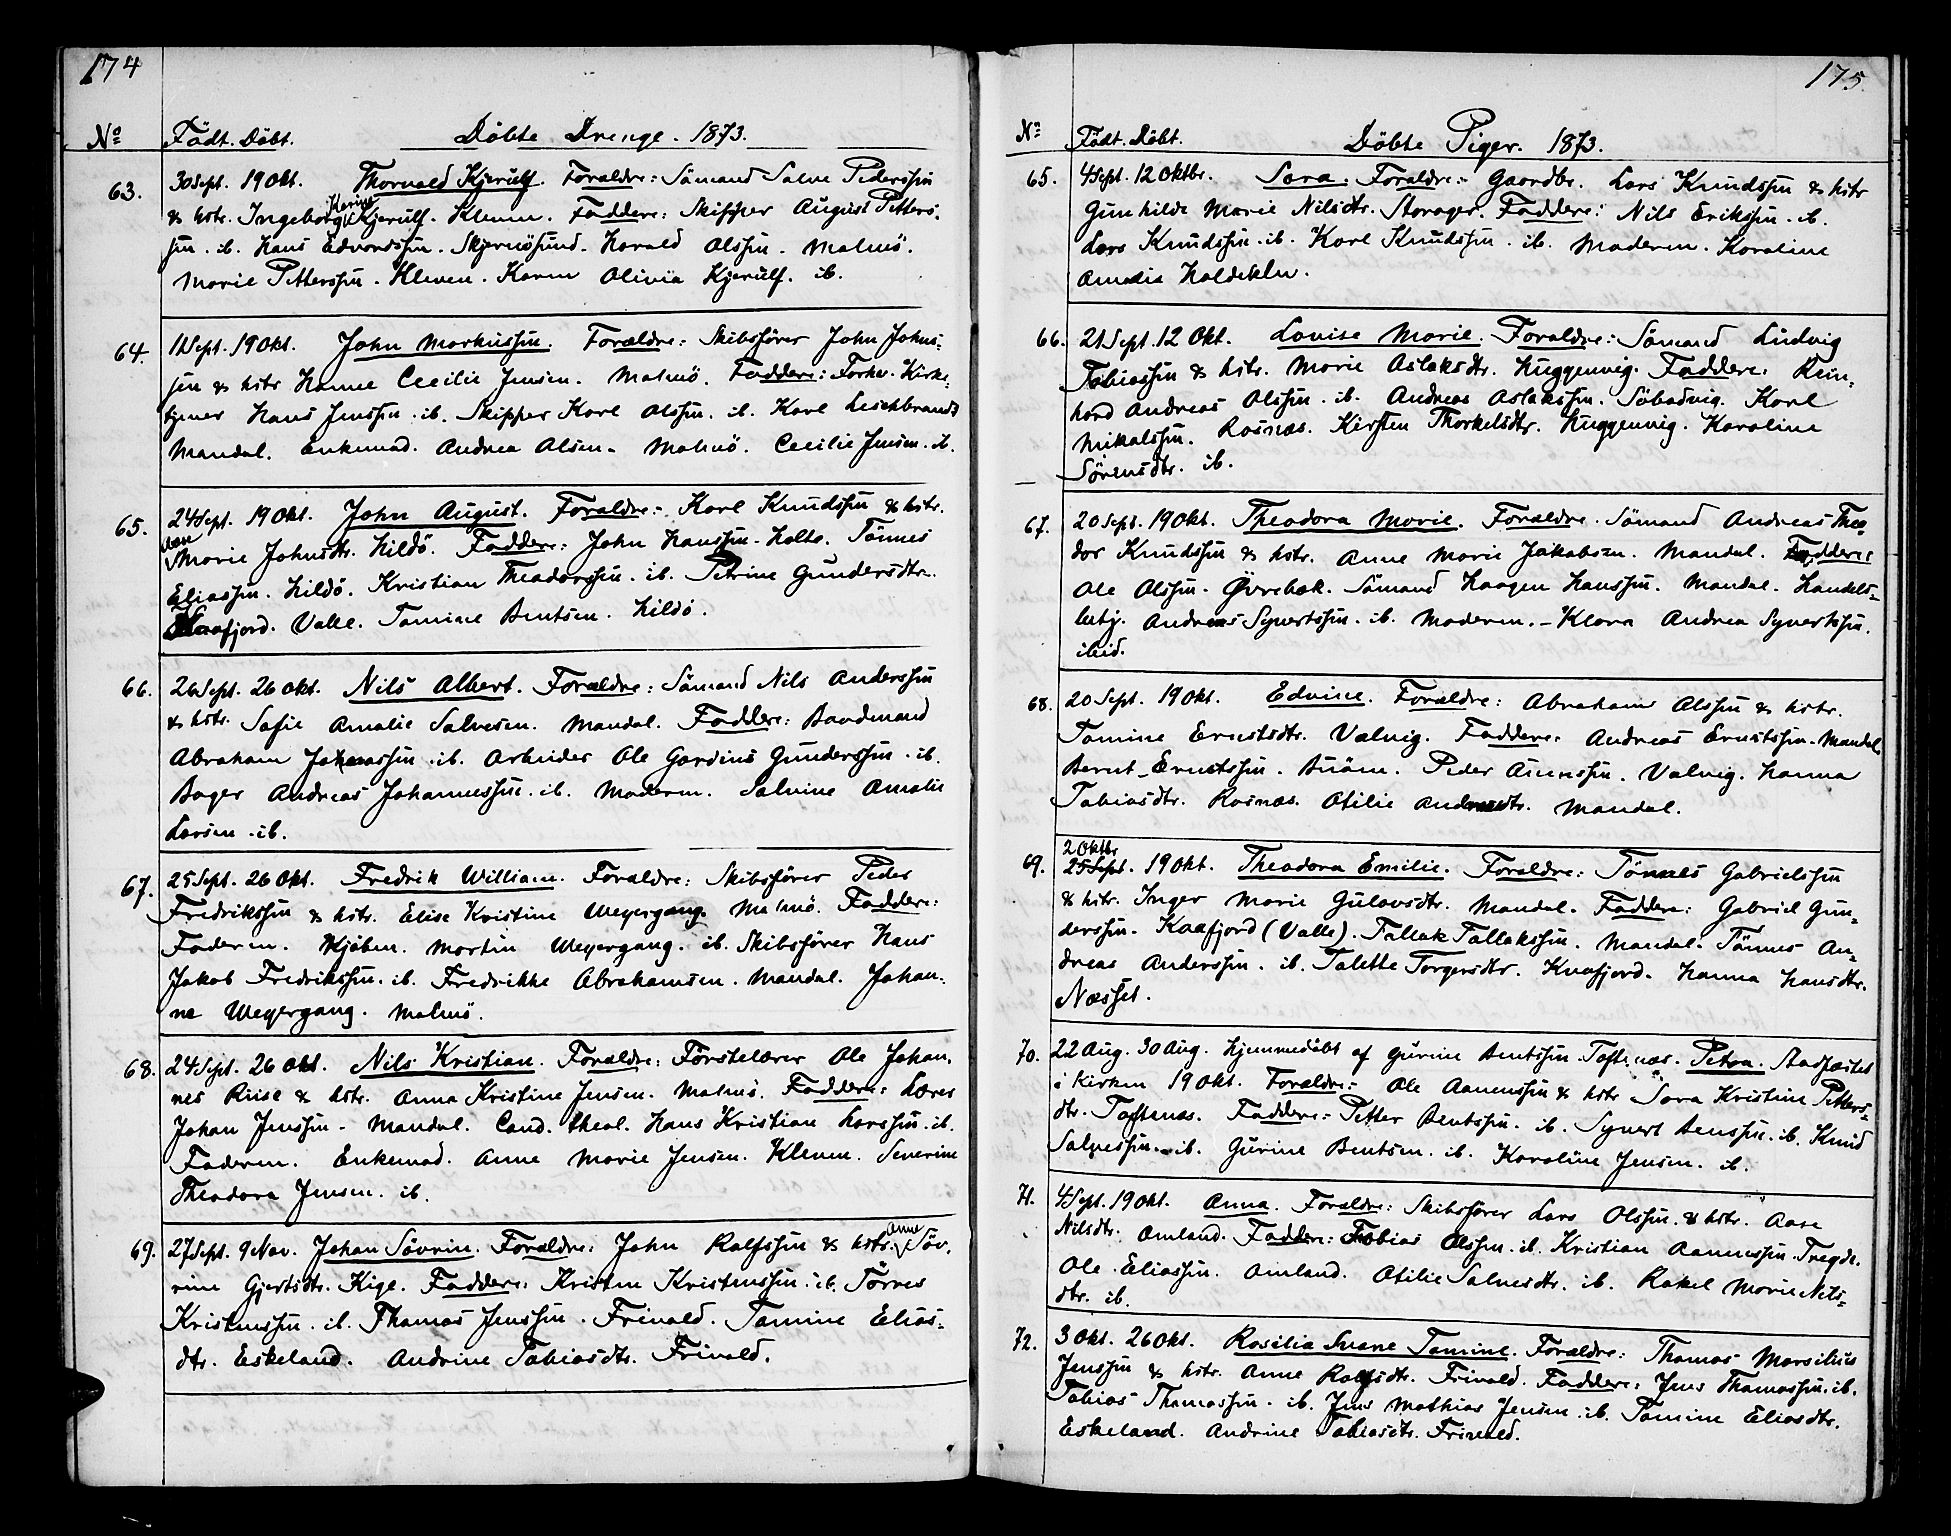 174
No Födt. Döbt. Döbte Drenge. 1873.
63. 30 Sept. 19 Okt. Thorvald Kjerulf. Forældre: Sömand Salve Pederssen
& hstr. Ingeborg Karine Kjerulf. Kleven. Faddere: Skipper August Petters-
sen. ib. Hans Edvardssen. Skjernösund. Harald Olssen. Malmö.
Marie Petterssen. Kleven. Karen Olivia Kjerulf. ib.
64. 11 Sept. 19 Okt. John Markussen. Forældre: Skibsförer John Johns-
sen & hstr Hanne Cecilie Jensen. Malmö. Faddere: Forhv. Kirke-
tjener Hans Jenssen. ib. Skipper Karl Olssen. ib. Karl Leschbrandt
Mandal. Enkemad. Andrea Olsen. Malmö. Cecilie Jensen. ib.
65. 24 Sept. 19 Okt. John August. Forældre: Karl Knudssen & hstr.
Marie Johnsdtr. Hildö. Faddere: John Hanssen. Holte. Tönnes
Eliassen. Hildö. Kristian Theodorssen. ib. Petrine Gundersdtr.
Kaafjord. Valle. Tomine Bentsen. Hildö.
66. 26 Sept. 26 Okt. Nils Albert. Forældre: Sömand Nils Anderssen
& hstr. Sofie Amalie Salvesen. Mandal. Faddere: Baadmand
Abraham Johannssen. ib. Arbeider Ole Gardius Gunderssen. ib.
Bager Andreas Johannessen. ib. Moderen. Salvine Amalie
Larsen. ib.
67. 25 Sept. 26 Okt. Fredrik William. Forældre: Skibsförer Peder
Fredrikssen & hstr. Elise Kristine Weyergang. Malmö. Faddere:
Faderen. Kjöbm. Martin Weyergang. ib. Skibsförer Hans
Jakob Fredrikssen. ib. Fredrikke Abrahamsen. Mandal. Johan-
ne Weyergang. Malmö.
68. 24 Sept. 26 Okt. Nils Kristian. Forældre: Förstelærer Ole Johan-
nes Riise & hstr. Anna Kristine Jensen. Malmö. Faddere: Lærer
Johan Jenssen. Mandal. Cand. theol. Hans Kristian Larssen. ib.
Faderen. Enkemad. Anne Marie Jensen. Kleven. Severine
Theodora Jensen. ib.
69. 27 Sept. 9 Nov. Johan Sövrin. Forældre: John Ralfssen & hstr. Anne Söv-
rine Gjertsdtr. Kige. Faddere: Kristen Kristenssen. ib. Törres
Kristenssen. ib. Thomas Jenssen. Frivold. Tomine Elias-
dtr. Eskeland. Andrine Tobiasdtr. Frivold.
175.
No Födt. Döbt. Döbte Piger. 1873.
65. 4 Sept. 12 Oktbr. Sara. Forældre: Gaardbr. Lars Knudssen & hstr
Gunhilde Marie Nilsdtr. Storager. Faddere: Nils Erikssen. ib.
Lars Knudssen. ib. Karl Knudssen. ib. Moderen. Karoline
Amalia
66. 21 Sept. 12 Okt. Lovise Marie. Forældre: Sömand Ludvig
Tobiassen & hstr. Marie Aslaksdtr. Huggenvig. Faddere: Rein-
hard Andreas Olssen. ib. Andreas Aslakssen. Söbadvig. Karl
Mikalssen. Rosnæs. Kirsten Thorkelsdtr. Huggenvig. Karoline
Sörensdtr. ib.
67. 20 Sept. 19 Okt. Theodora Marie. Forældre: Sömand Andreas Theo-
dor Knudssen & hstr. Anne Marie Jakobsen. Mandal. Faddere:
Ole Olssen. Øvrebæk. Sömand Haagen Hanssen. Mandal. Handels-
betj. Andreas Syvertssen. ib. Moderen. Klara Andrea Syvertssen.
ibid.
68. 20 Sept. 19 Okt. Edvine. Forældre: Abraham Olssen & hstr.
Tomine Ernstsdtr. Valvig. Faddere: Andreas Ernstssen. Mandal
Bernt Ernstssen. Buöen. Peder Aunessen. Valvig. Hanna
Tobiasdtr. Rosnæs. Otilie Andreasdtr. Mandal.
69. 2 Oktbr 25 Sept. 19 Okt. Theodora Emilie. Forældre: Tönnes Gabrielssen
& hstr. Inger Marie Gulovsdtr. Mandal. Faddere: Gabriel Gun-
derssen. Kaafjord (Valle). Tallak Tallakssen. Mandal. Tönnes An-
dreas Anderssen. ib. Talette Torgersdtr. Kaafjord. Hanna Hansdtr.
Næsset.
70. 22 Aug. 30 Aug. Hjemmedöbt af Gurine Bentssen Toftenæs. Petra. Stadfæstet
i Kirken 19 Okt. Forældre: Ole Aanenssen & hstr Sara Kristine Petters-
dtr. Toftenæs. Faddere: Petter Bentssen. ib. Syvert Benssen. ib. Knud
Salvessen. ib. Gurine Bentsen. ib. Karoline Jensen. ib.
71. 4 Sept. 19 Okt. Anna. Forældre: Skibsförer Lars Olssen & hstr. Aase
Nilsdtr. Omland. Faddere: Tobias Olssen. ib. Kristian Aanenssen. Tregde.
Ole Eliassen. Omland. Otilie Salvesdtr. ib. Rakel Marie Nils-
dtr. ib.
72. 3 Okt. 26 Okt. Rosilia Svane Tomine. Forældre: Thomas Marsilius
Jenssen & hstr. Anne Ralfsdtr. Frivold. Faddere: Jens Thomassen. ib.
Tobias Thomassen. ib. Jens Mathias Jensen. ib. Tomine Eliasdtr.
Eskeland. Andrine Tobiasdtr. Frivold.